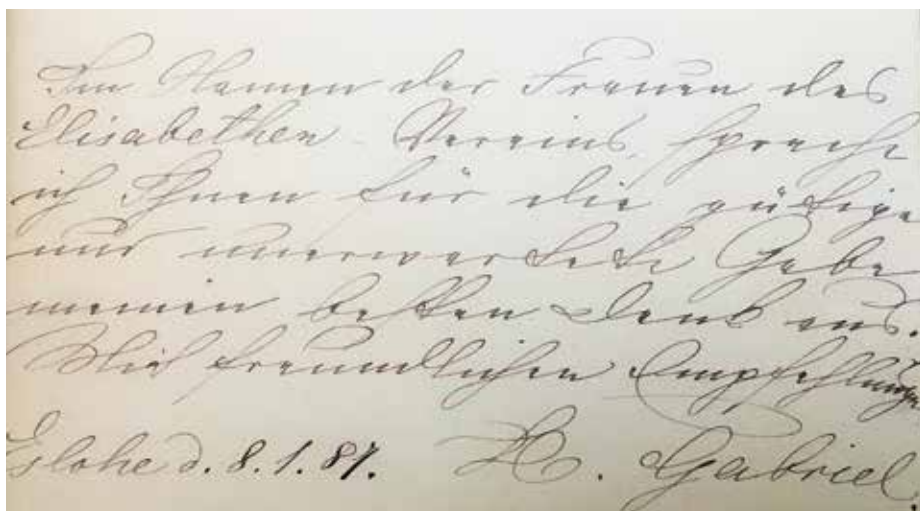 Im Namen der Frauen des
Elisabethen-Vereins, spreche
ich Ihnen für die gütige
und unerwartete Gabe
meinen besten Dank aus.
Mit freundlichen Empfehlungen
Eslohe d. 8. 1. 87. H. Gabriel.